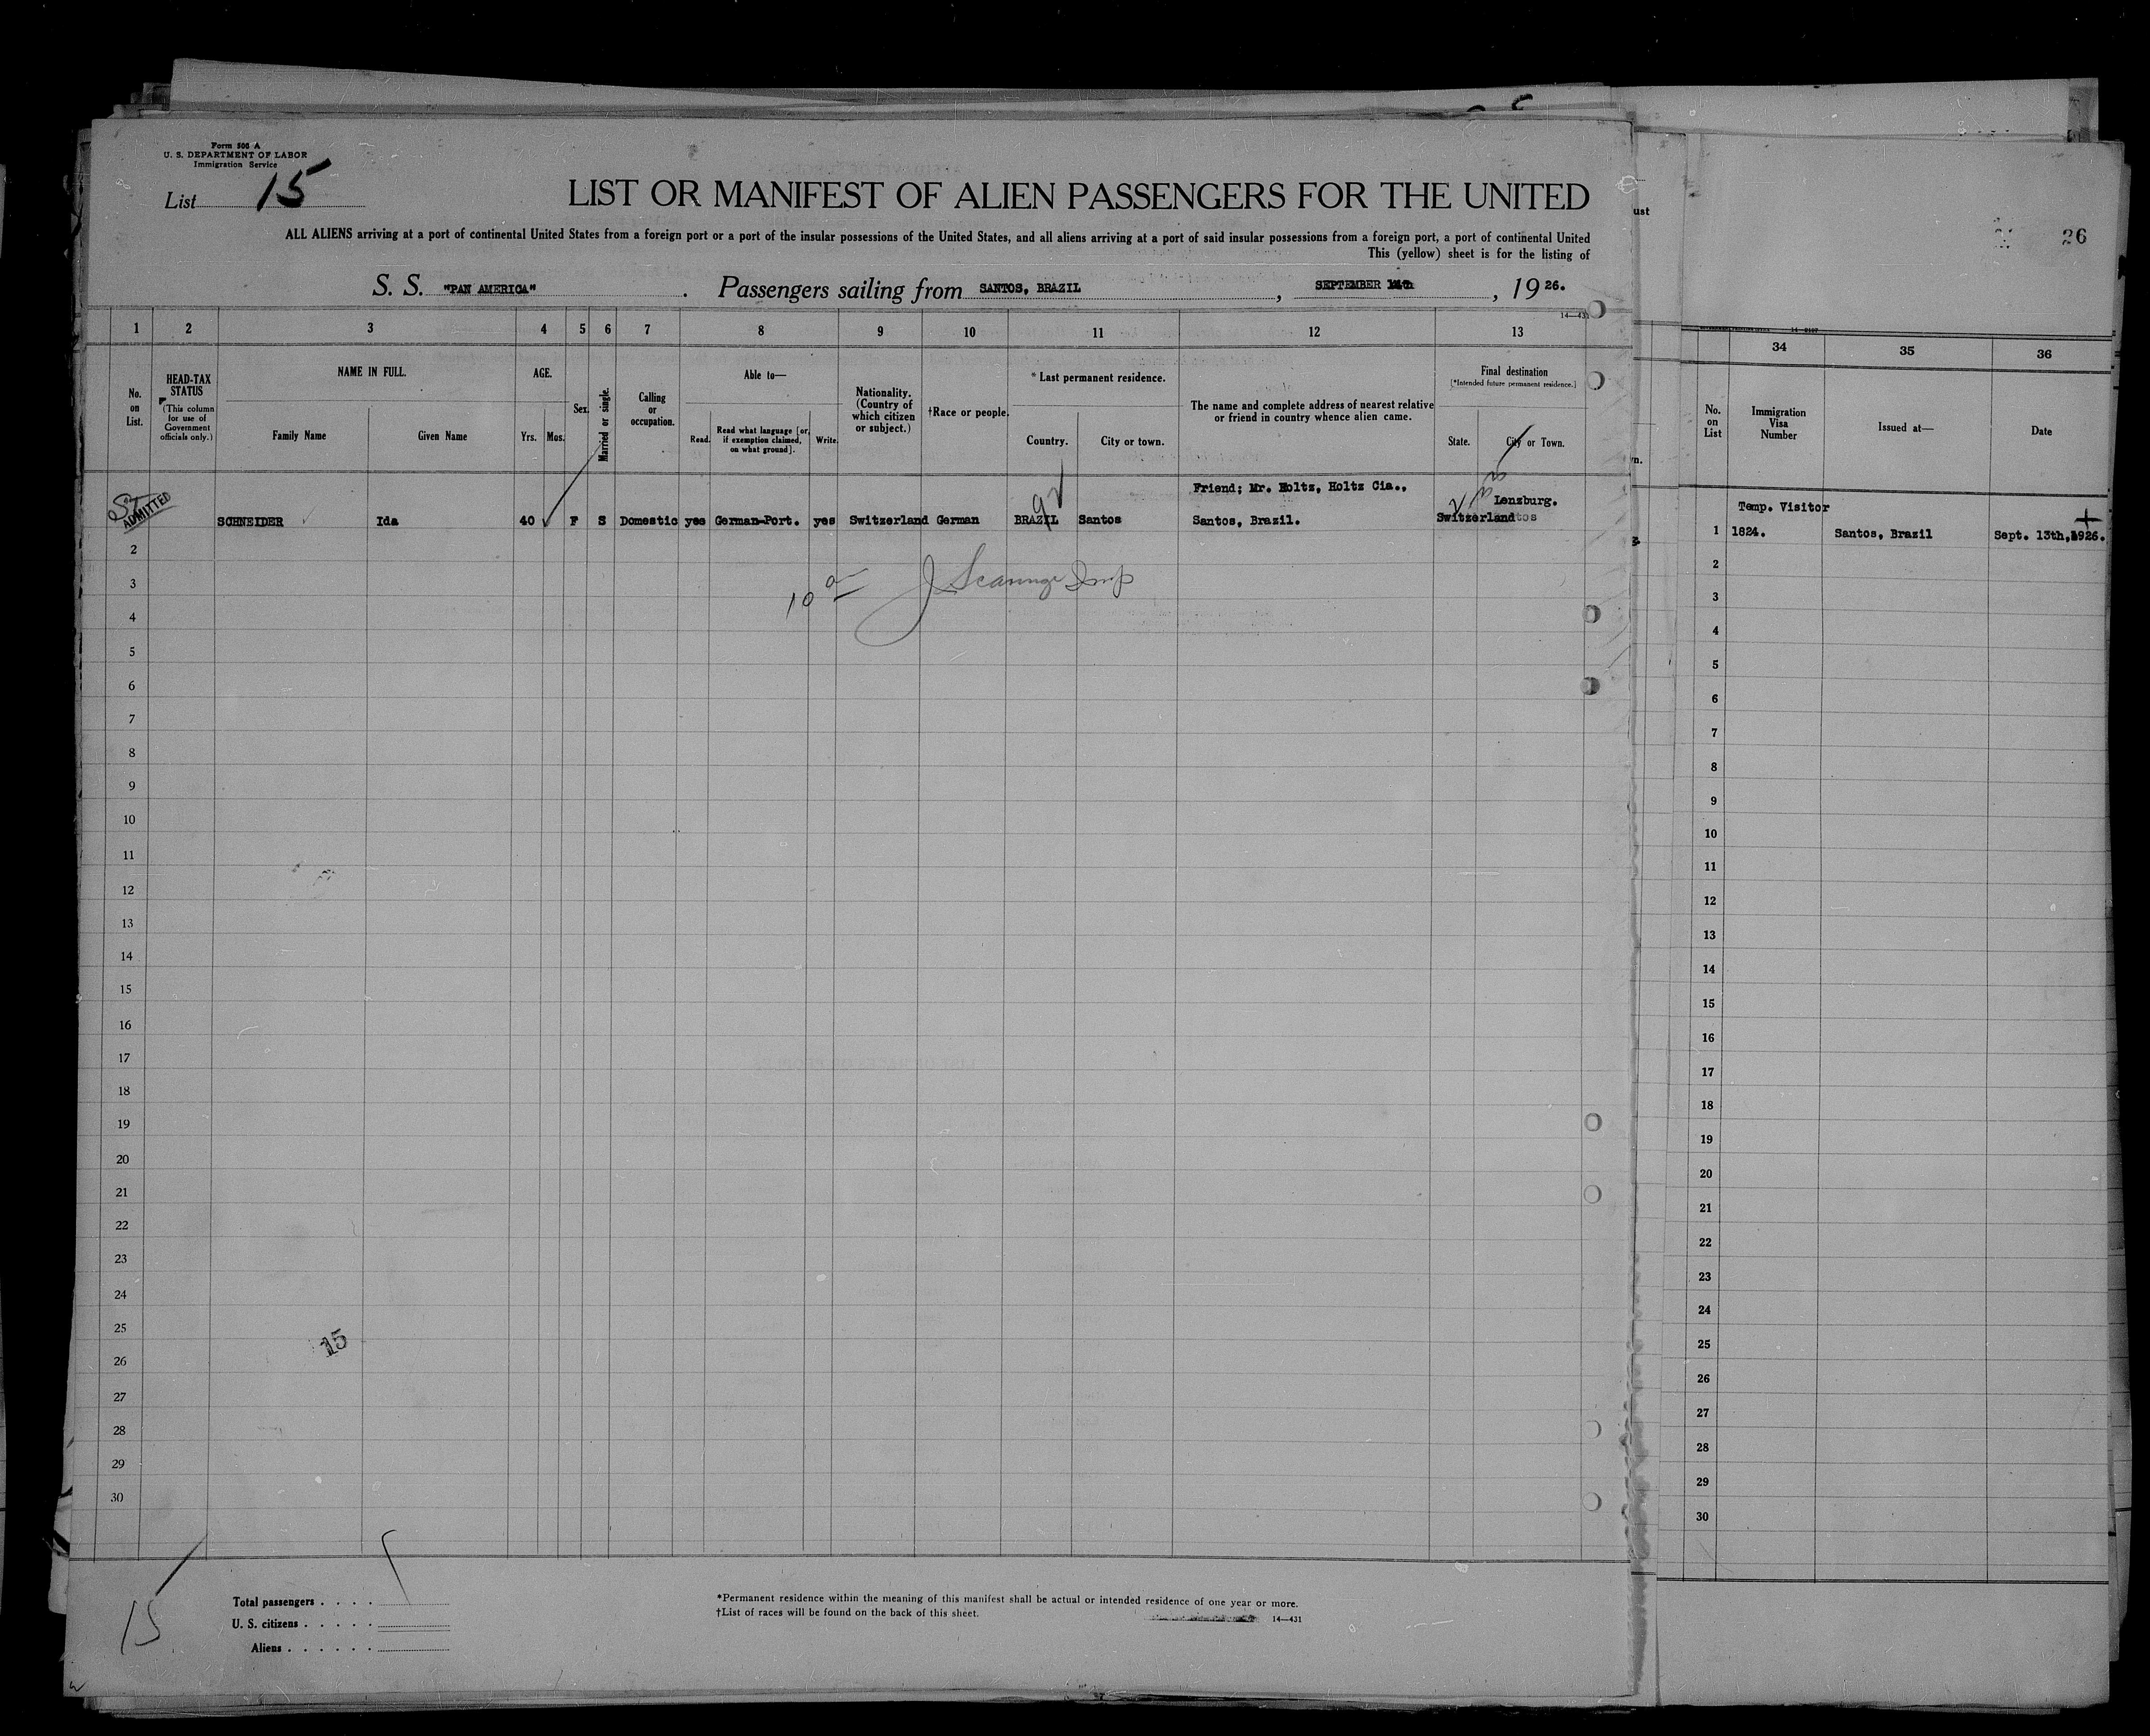 Form 500 A
U. S. DEPARTMENT OF LABOR
Immigration Service
List 15
LIST OR MANIFEST OF ALIEN PASSENGERS FOR THE UNITED
ALL ALIENS arriving at a port of continental United States from a foreign port or a port of the insular possessions of the United States, and all aliens arriving at a port of said insular possessions from a foreign port, a port of continental United
This (yellow) sheet is for the listing of
S. S. "PAN AMERICA". Passengers sailing from SANTOS, BRAZIL, SEPTEMBER 14th, 1926.
14—431
1 2 3 4 5 6 7 8 9 10 11 12 13
No. on List.
HEAD-TAX STATUS
(This column for use of Government officials only.)
NAME IN FULL.
Family Name
Given Name
AGE.
Yrs.
Mos.
Sex.
Married or single.
Calling or occupation.
Able to—
Read.
Read what language [or, if exemption claimed, on what ground].
Write.
Nationality. (Country of which citizen or subject.)
†Race or people.
* Last permanent residence.
Country.
City or town.
The name and complete address of nearest relative or friend in country whence alien came.
Final destination
[*Intended future permanent residence.]
State.
City or Town.
ADMITTED
SCHNEIDER Ida 40 F S Domestic yes German-Port. yes Switzerland German BRAZIL Santos
Friend; Mr. Holtz, Holtz Cia.,
Santos, Brazil.
Lenzburg.
Switzerland
2
10
3
4
5
6
7
8
9
10
11
12
13
14
15
16
17
18
19
20
21
22
23
24
25
15
26
27
28
29
30
15
Total passengers . . . .
U. S. citizens . . . . .
Aliens . . . . . .
*Permanent residence within the meaning of this manifest shall be actual or intended residence of one year or more.
†List of races will be found on the back of this sheet.
14—431
ust
26
34 35 36
No. on List
Immigration Visa Number
Issued at—
Date
Temp. Visitor
1 1824. Santos, Brazil Sept. 13th, 1926.
2
3
4
5
6
7
8
9
10
11
12
13
14
15
16
17
18
19
20
21
22
23
24
25
26
27
28
29
30